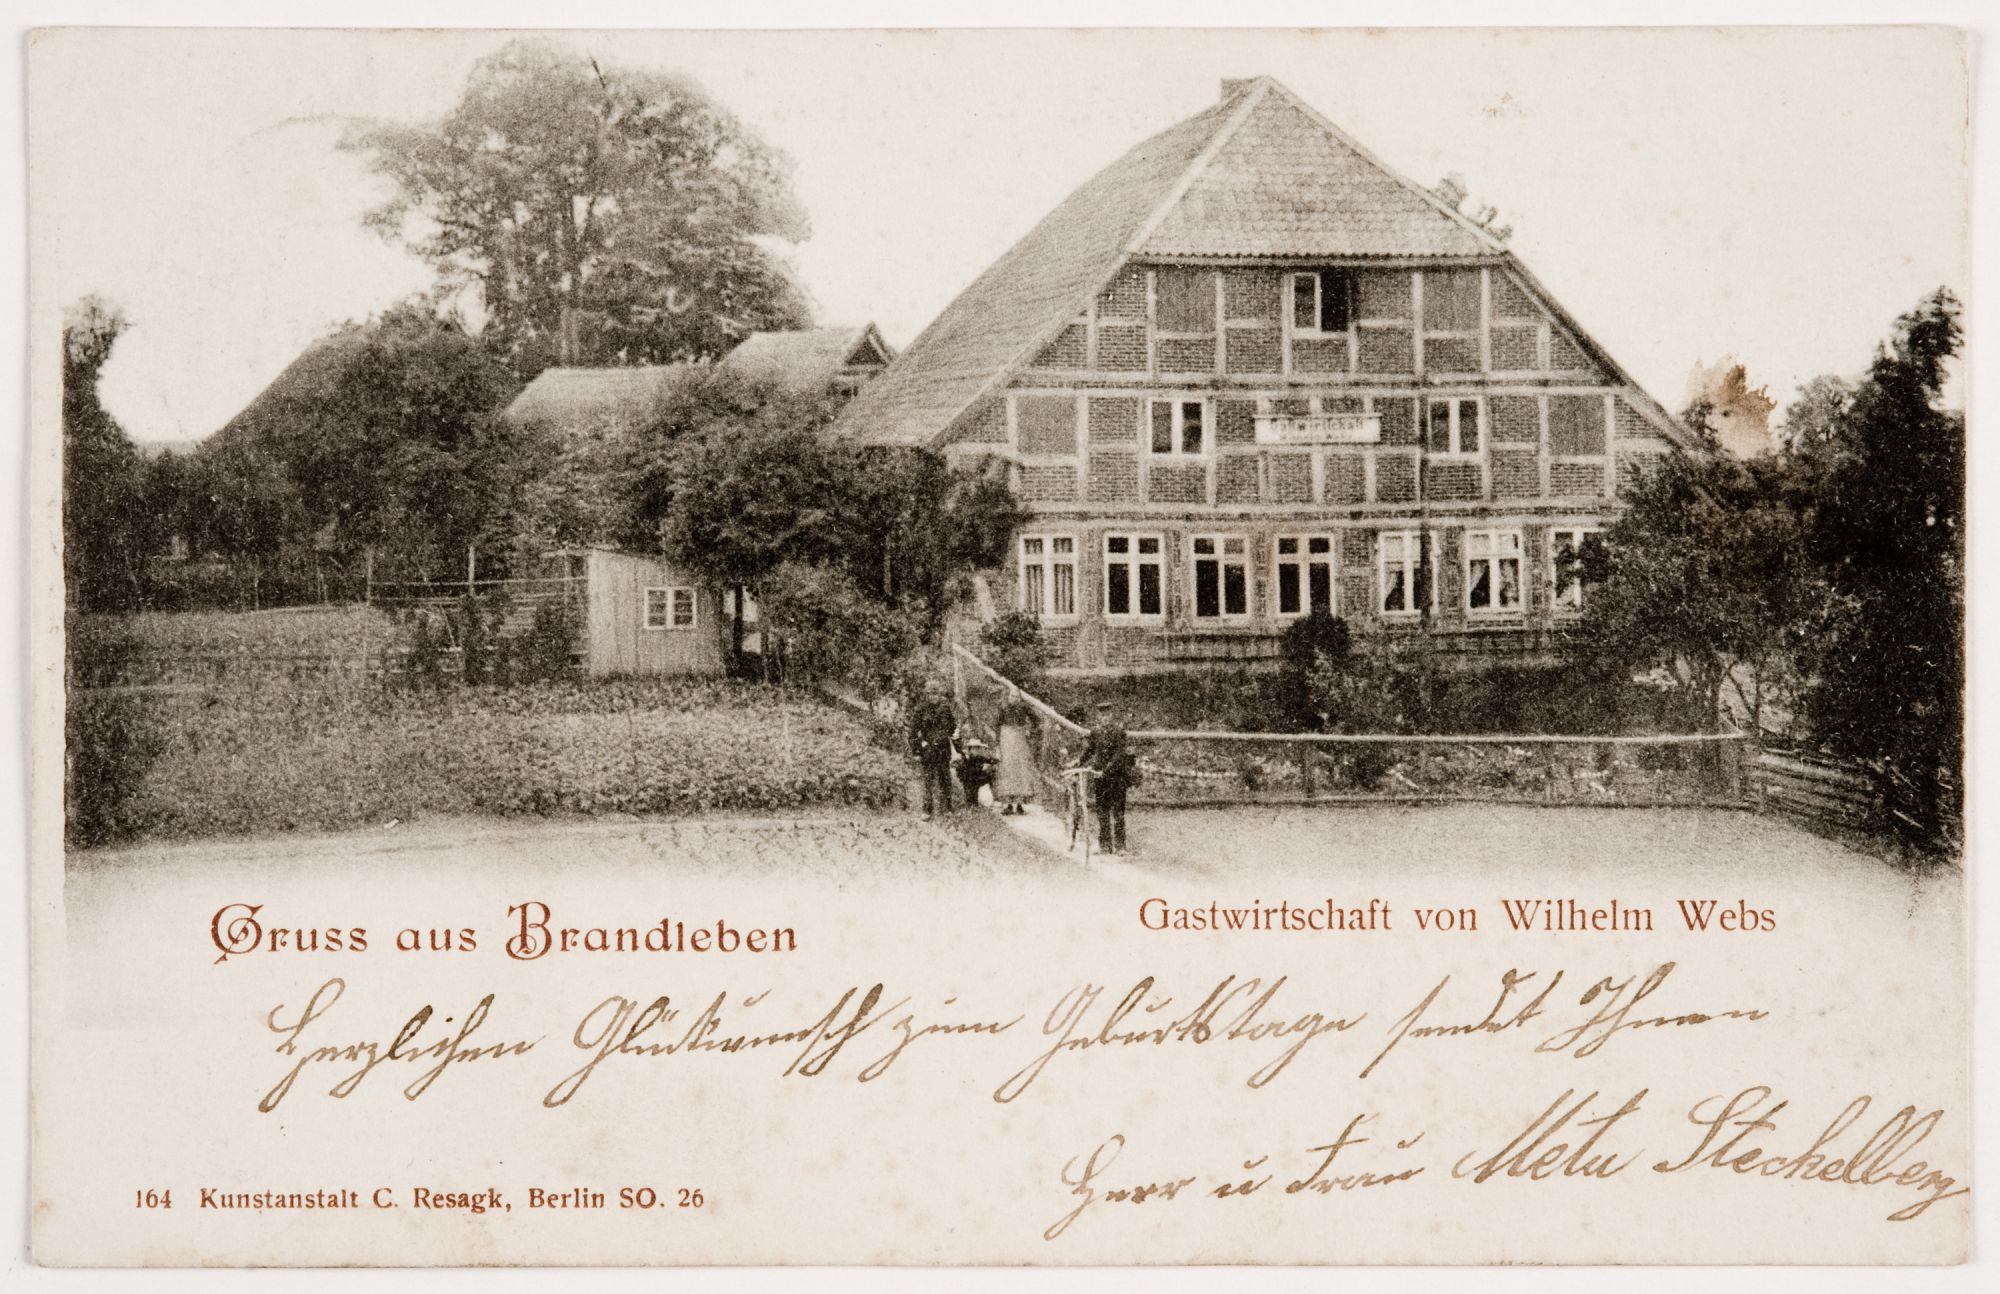 Gastwirtschaft
Gruss aus Brandleben
Gastwirtschaft von Wilhelm Webs
Herzlichen Glückwunsch zum Geburtstage sendet Ihnen
Herr u Frau Meta Steckelberg
164 Kunstanstalt C. Resagk, Berlin SO. 26